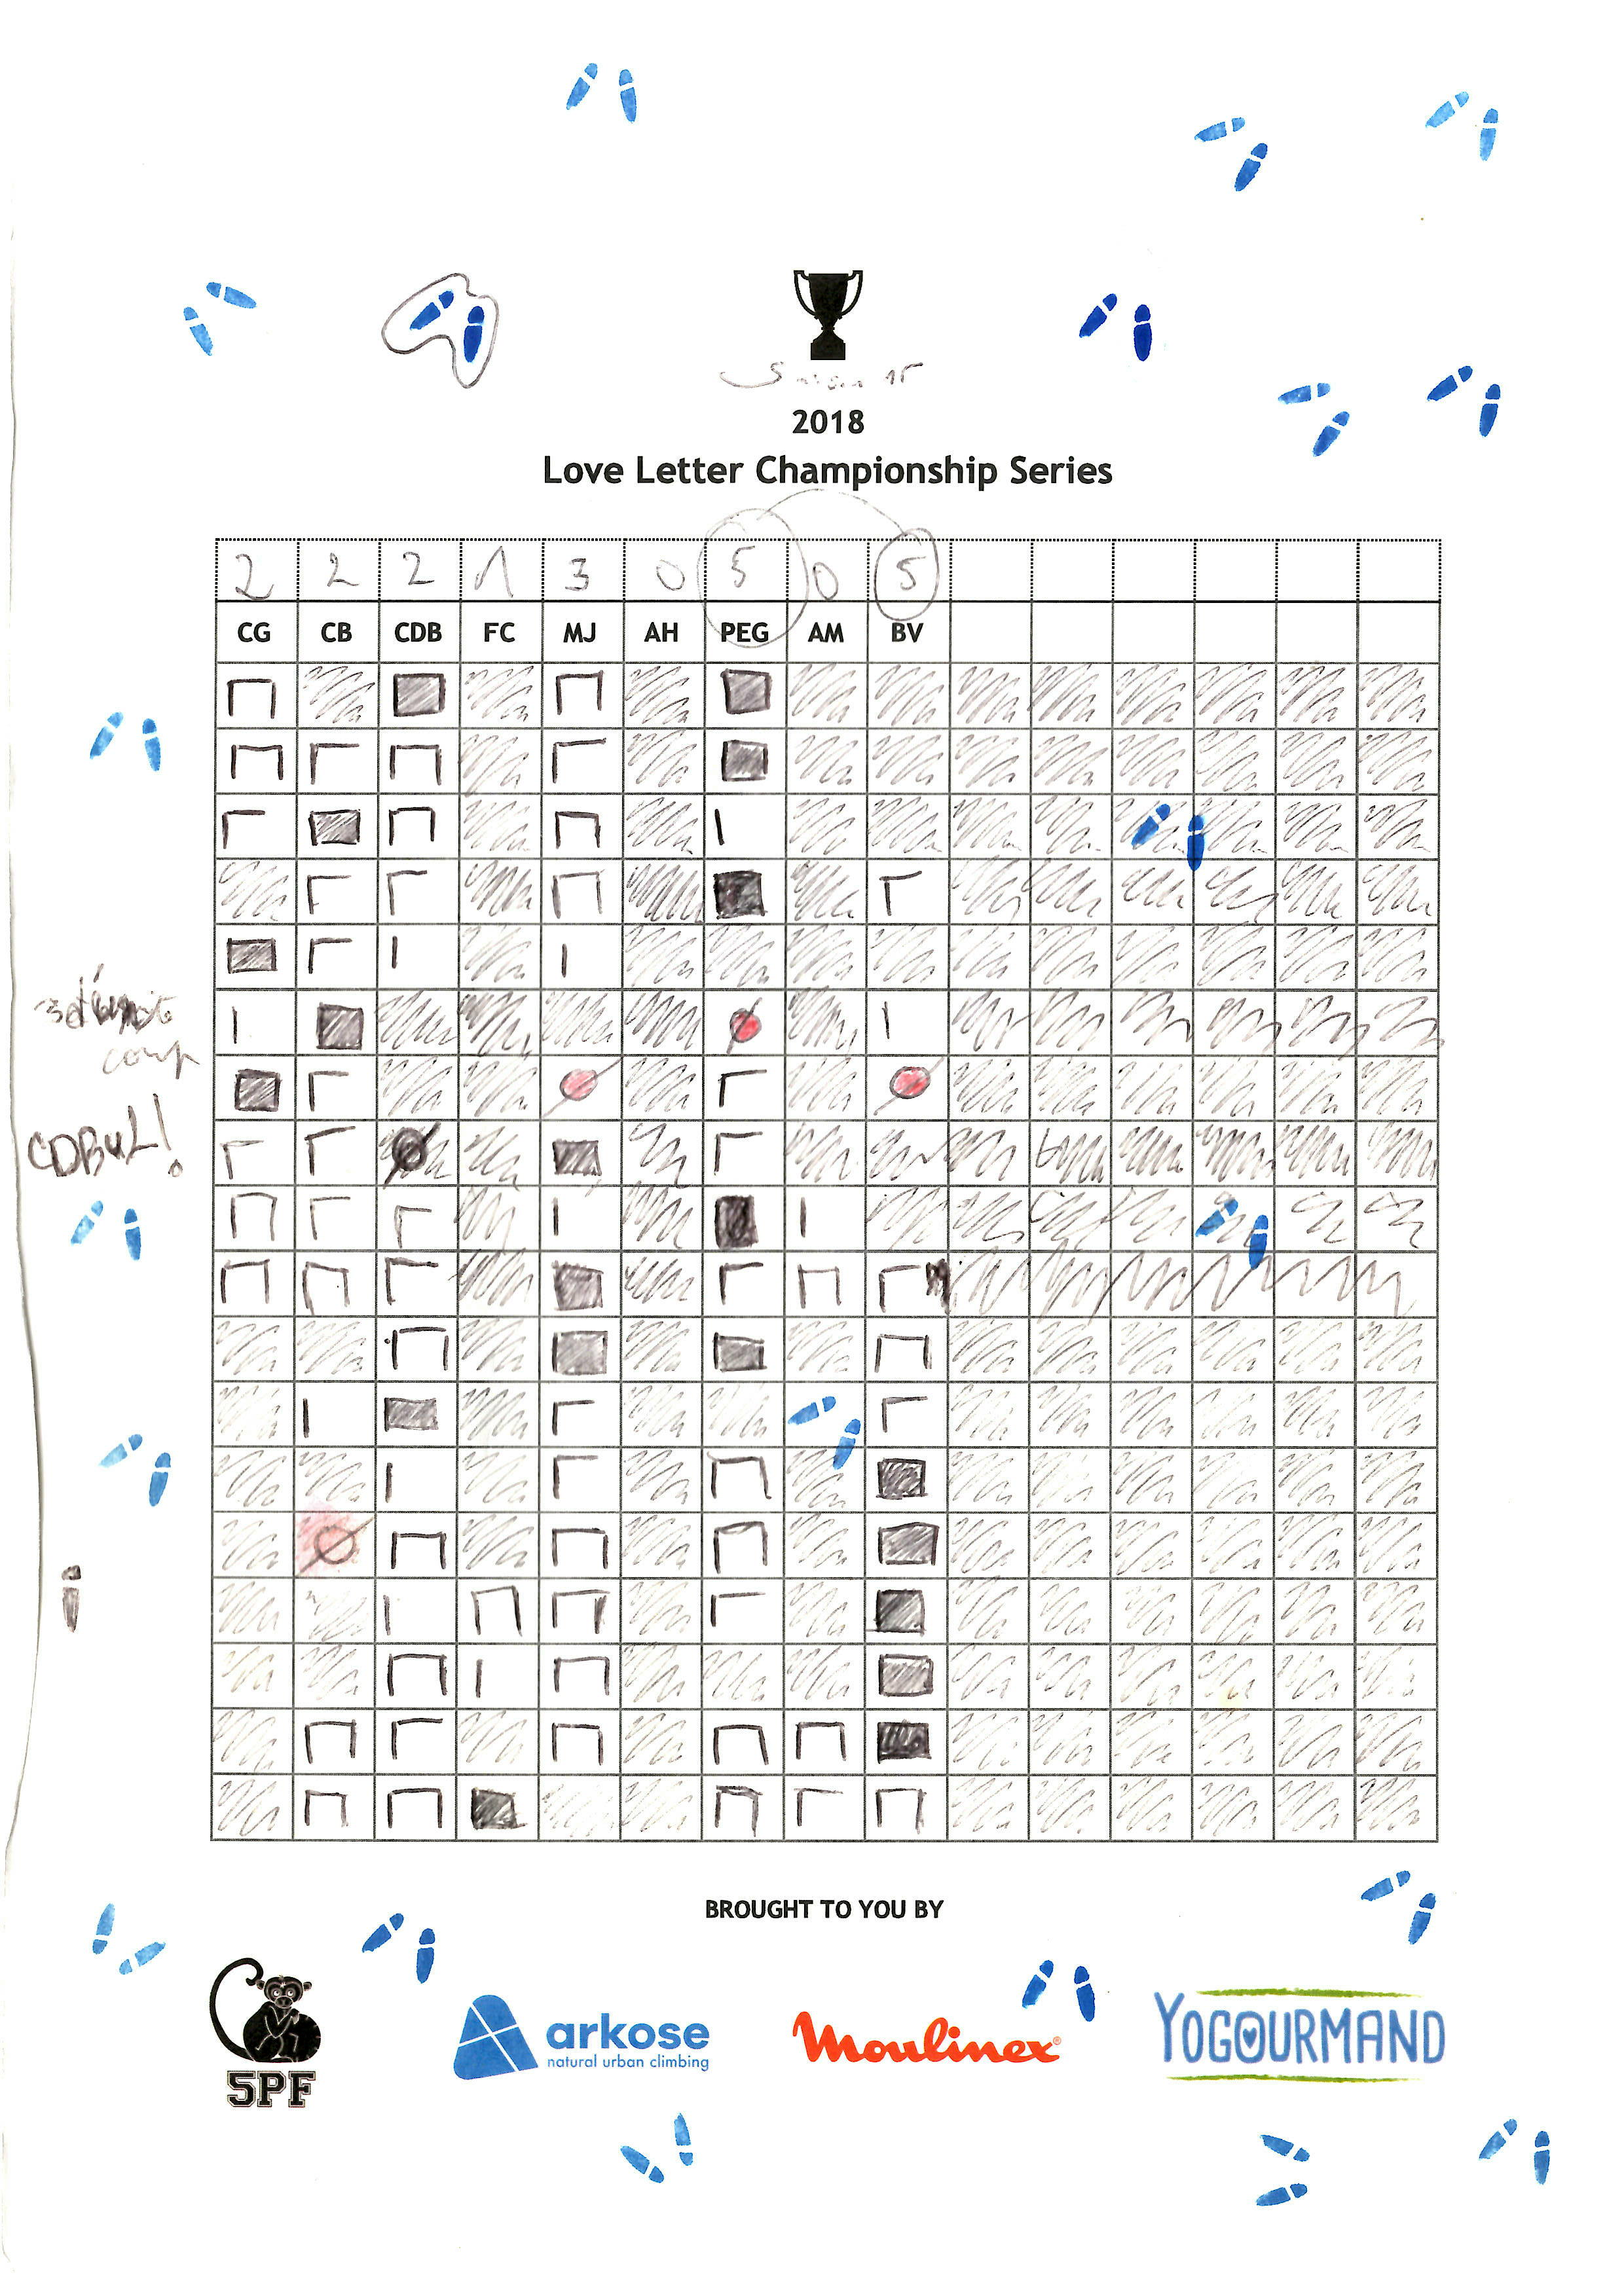 Saison 15
2018
Love Letter Championship Series
2 2 2 1 3 0 5 0 5
CG CB CDB FC MJ AH PEG AM BV
coup
CDBUL!
BROUGHT TO YOU BY
5PF
arkose
natural urban climbing
Moulinex®
YOGOURMAND